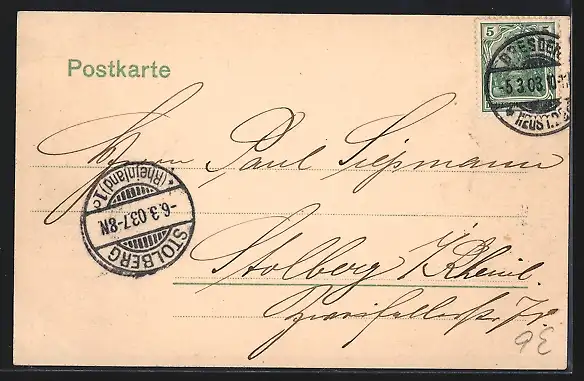 Postkarte
5 5
DRESDEN
-5.3.03.10-11
NEUST.
Herrn Paul Siepmann
(Rheinland) 1c
-6.3.03.7-8N
STOLBERG
Stolberg i/Rheinl.